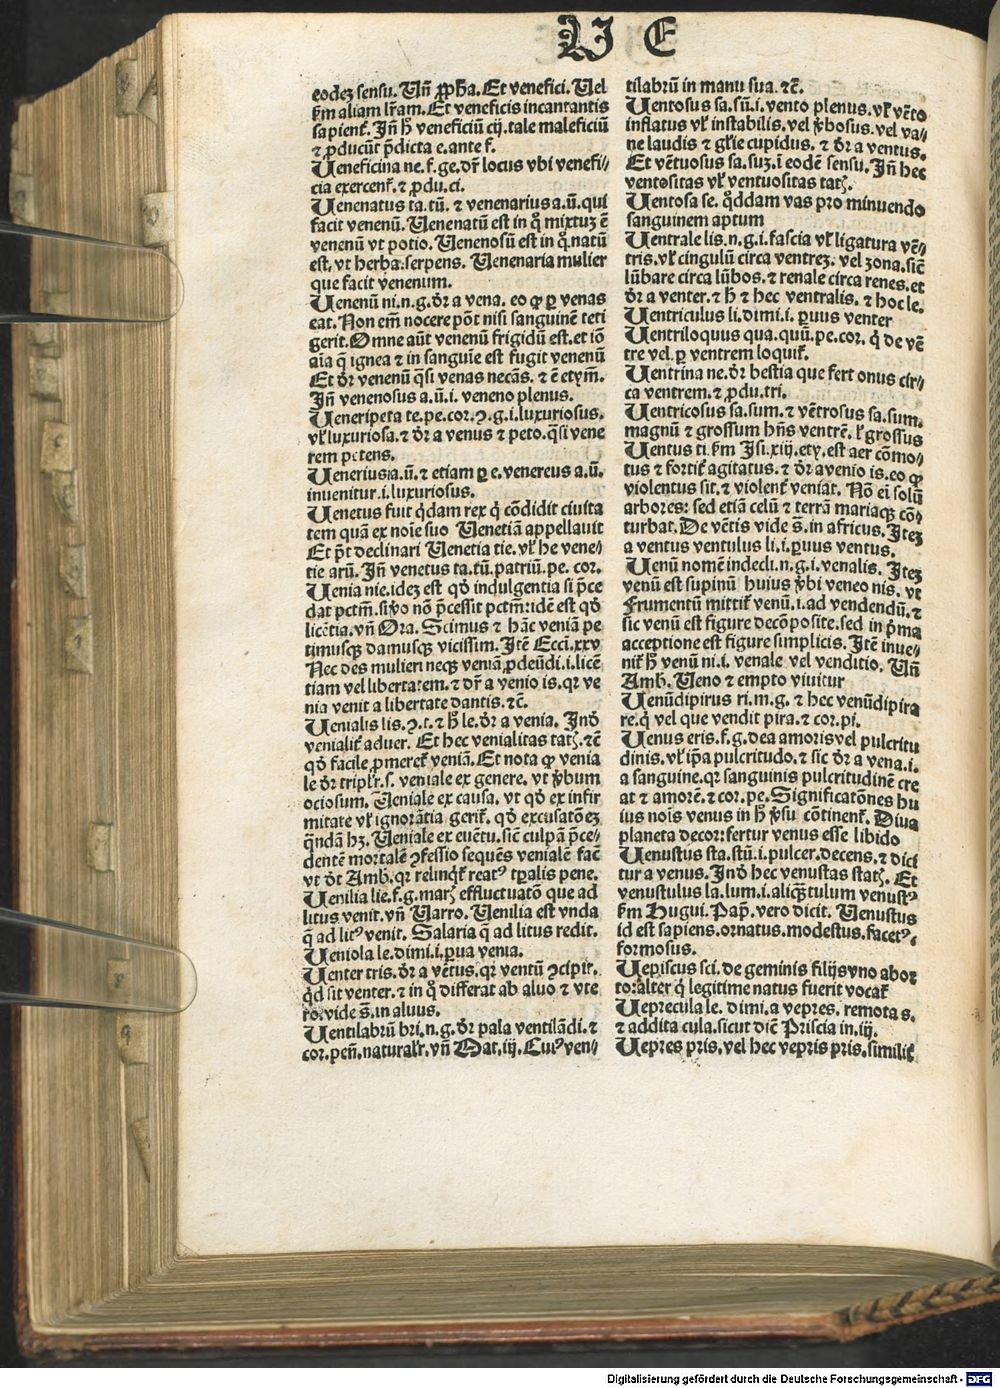 VE
eodeʒ sensu. Uñ ꝓpha. Et venefici. Uel
ẜm aliam lr̄am. Et veneficis incantantis
sapienť. Jñ h̄ veneficiū cij. tale maleficiū
⁊ ꝓducūt p̄dicta e. ante f.
Ueneficina ne. f. ge. dr̄ locus vbi venefi⸗
cia exercenť. ⁊ ꝓdu. ci.
Uenenatus ta. tū. ⁊ venenarius a. ū. qui
facit venenū. Uenenatū est in q̊ mixtuʒ ē
venenū vt potio. Uenenosū est in q̊. natū
est, vt herba. serpens. Uenenaria mulier
que facit venenum.
Uenenū ni. n. g. dr̄ a vena. eo ꝙ ꝑ venas
eat. Non em̄ nocere pōt nisi sanguinē teti
gerit. Omne aūt venenū frigidū est. et iō
aīa q̄ ignea ⁊ in sanguīe est fugit venenū
Et dr̄ venenū q̄si venas necās. ⁊ ē etym̄.
Jñ venenosus a. ū. i. veneno plenus.
Ueneripeta te. pe. cor. ꝯ. g. i. luxuriosus.
vľ luxuriosa. ⁊ dr̄ a venus ⁊ peto. q̄si vene
rem petens.
Uenerius a. ū. ⁊ etiam ꝑ e. venereus a. ū.
inuenitur. i. luxuriosus.
Uenetus fuit q̇dam rex q̇ cōdidit ciuita
tem quā ex noīe suo Uenetiā appellauit
Et p̄t declinari Uenetia tie. vľ he vene⸗
tie arū. Jñ venetus ta. tū. patriū. pe. cor.
Uenia nie. idez est qd̄ indulgentia si p̄ce
dat pctm̄. si v̊o nō p̄cessit pctm̄: idē est qd̄
licētia. vñ Ora. Scimus ⁊ hāc veniā pe
timusqꝫ damusqꝫ vicissim. Jtē Ecci. xxv
Nec des mulieri neqꝫ veniā ꝓdeūdi. i. licē
tiam vel libertatem. ⁊ dr̄ a venio is. qꝛ ve
nia venit a libertate dantis. ⁊c̄.
Uenialis lis. ꝯ. t. ⁊ h̄ le. dr̄ a venia. Jnd̄
venialiť aduer. Et hec venialitas tatꝭ. ⁊c̄
qd̄ facile ꝓmereť veniā. Et nota ꝙ venia
le dr̄ tripľr. s. veniale ex genere. vt v̊bum
ociosum. Ueniale ex causa. vt qd̄ ex infir
mitate vľ ignorātia geriť. qd̄ excusatōeʒ
q̄ndā hꝫ. Ueniale ex euētu. sic̄ culpā p̄ce⸗
dentē mortalē ꝯfessio sequēs venialē facit
vt dt̄ Amb̄. qꝛ relinqť reatꝰ tꝑalis pene.
Uenilia lie. f. g. marꝭ effluctuatō que ad
litus venit. vñ Uarro. Uenilia est vnda
q̄ ad litꝰ venit. Salaria q̄ ad litus redit.
Ueniola le. dimi. i. ꝑua venia.
Uenter tris. dr̄ a vētus. qꝛ ventū ꝯcipit.
q̇d sit venter. ⁊ in q̊ differat ab aluo ⁊ vte
ro. vide s̄. in aluus.
Uentilabrū bri. n. g. dr̄ pala ventilādi. ⁊
cor. peñ. naturaľr. vñ Mat. iij. Cuiꝰ ven⸗
tilabrū in manu sua. ⁊c̄.
Uentosus sa. sū. i. vento plenus. vľ vēto
inflatus vľ instabilis. vel v̊bosus. vel va⸗
ne laudis ⁊ gľie cupidus. ⁊ dr̄ a ventus.
Et vētuosus sa. suʒ. ī eodē sensu. Jñ hec
ventositas vľ ventuositas tatꝭ.
Uentosa se. q̇ddam vas pro minuendo
sanguinem aptum
Uentrale lis. n. g. i. fascia vľ ligatura vē⸗
tris. vľ cingulū circa ventreʒ. vel zona. sic̄
lūbare circa lūbos. ⁊ renale circa renes. et
dr̄ a venter. ⁊ h̄ ⁊ hec ventralis. ⁊ hoc le.
Uentriculus li. dimi. i. ꝑuus venter
Uentriloquus qua. quū. pe. cor. q̇ de vē
tre vel ꝑ ventrem loquiť.
Uentrina ne. dr̄ bestia que fert onus cir⸗
ca ventrem. ⁊ ꝓdu. tri.
Uentricosus sa. sum. ⁊ vētrosus sa. sum.
magnū ⁊ grossum hñs ventrē. ľ grossus
Uentus ti ẜm Jsi. xiij. ety. est aer cōmo⸗
tus ⁊ fortiť agitatus. ⁊ dr̄ a venio is. eo ꝙ
violentus sit. ⁊ violenť veniat. Nō ei solū
arbores: sed etiā celū ⁊ terrā mariaqꝫ cō⸗
turbat. De vētis vide s̄. in africus. Jteʒ
a ventus ventulus li. i. ꝑuus ventus.
Uenū nomē indecli. n. g. i. venalis. Jteʒ
venū est supinū huius v̊bi veneo nis. vt
Frumentū mittiť venū. i. ad vendendū. ⁊
sic venū est figure decōposite. sed in p̄ma
acceptione est figure simplicis. Jtē inue⸗
niť h̄ venū ni. i. venale vel venditio. Uñ
Amb̄. Ueno ⁊ empto viuitur
Uenūdipirus ri. m. g. ⁊ hec venūdipira
re. q̇ vel que vendit pira. ⁊ cor. pi.
Uenus eris. f. g. dea amoris vel pulcritu
dinis. vľ ip̄a pulcritudo. ⁊ sic dr̄ a vena. i.
a sanguine. qꝛ sanguinis pulcritudinē cre
at ⁊ amorē. ⁊ cor. pe. Significatōnes hu
ius nois venus in h̄ v̊su cōtinenť. Diua
planeta decor: fertur venus esse libido
Uenustus sta. stū. i. pulcer. decens. ⁊ dici
tur a venus. Jnd̄ hec venustas statꝭ. Et
venustulus la. lum. i. aliq̄tulum venustꝰ
ẜm Hugui. Pap̄. vero dicit. Uenustus
id est sapiens. ornatus. modestus. facetꝰ.
formosus.
Uepiscus sci. de geminis filijs vno abor
to: alter q̇ legitime natus fuerit vocať
Ueprecula le. dimi. a vepres. remota s.
⁊ addita cula. sicut dic̄ Priscia in. iij.
Uepres pris. vel hec vepris pris. similiť
Digitalisierung gefördert durch die Deutsche Forschungsgemeinschaft - DFG